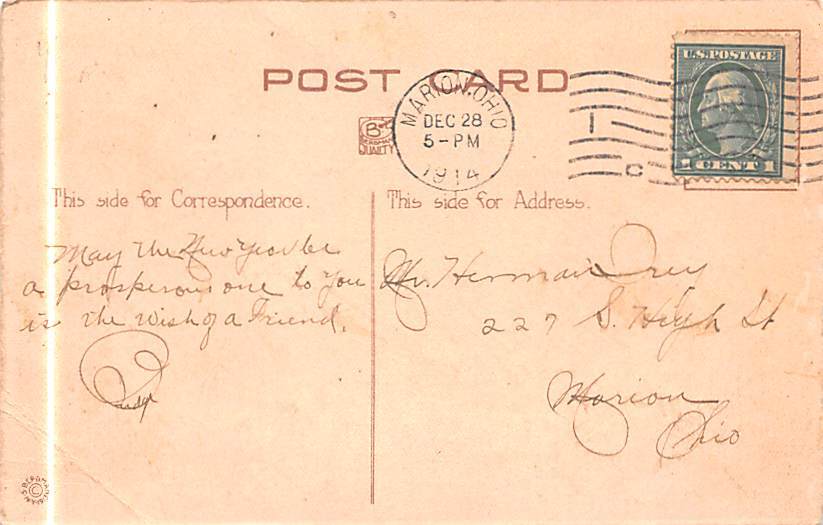 U.S. POSTAGE
POST CARD
MARION, OHIO
DEC 28
5-PM
1914
B
BERGMAN
QUALITY
1 CENT 1
C
This side for Correspondence.
This side for Address.
May the New Year be
a prosperous one to You
is the Wish of a Friend.
Mr. Herman
227 S. High St
Marion
Ohio